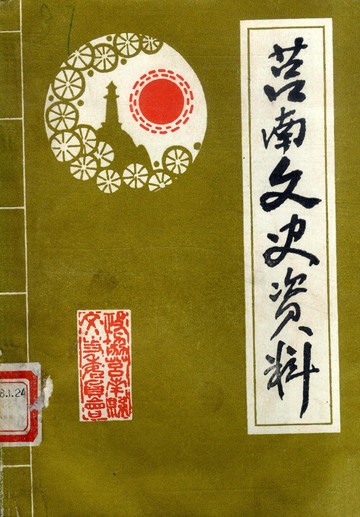 莒南文史资料
政协莒南县
文史委员会
8.1.24